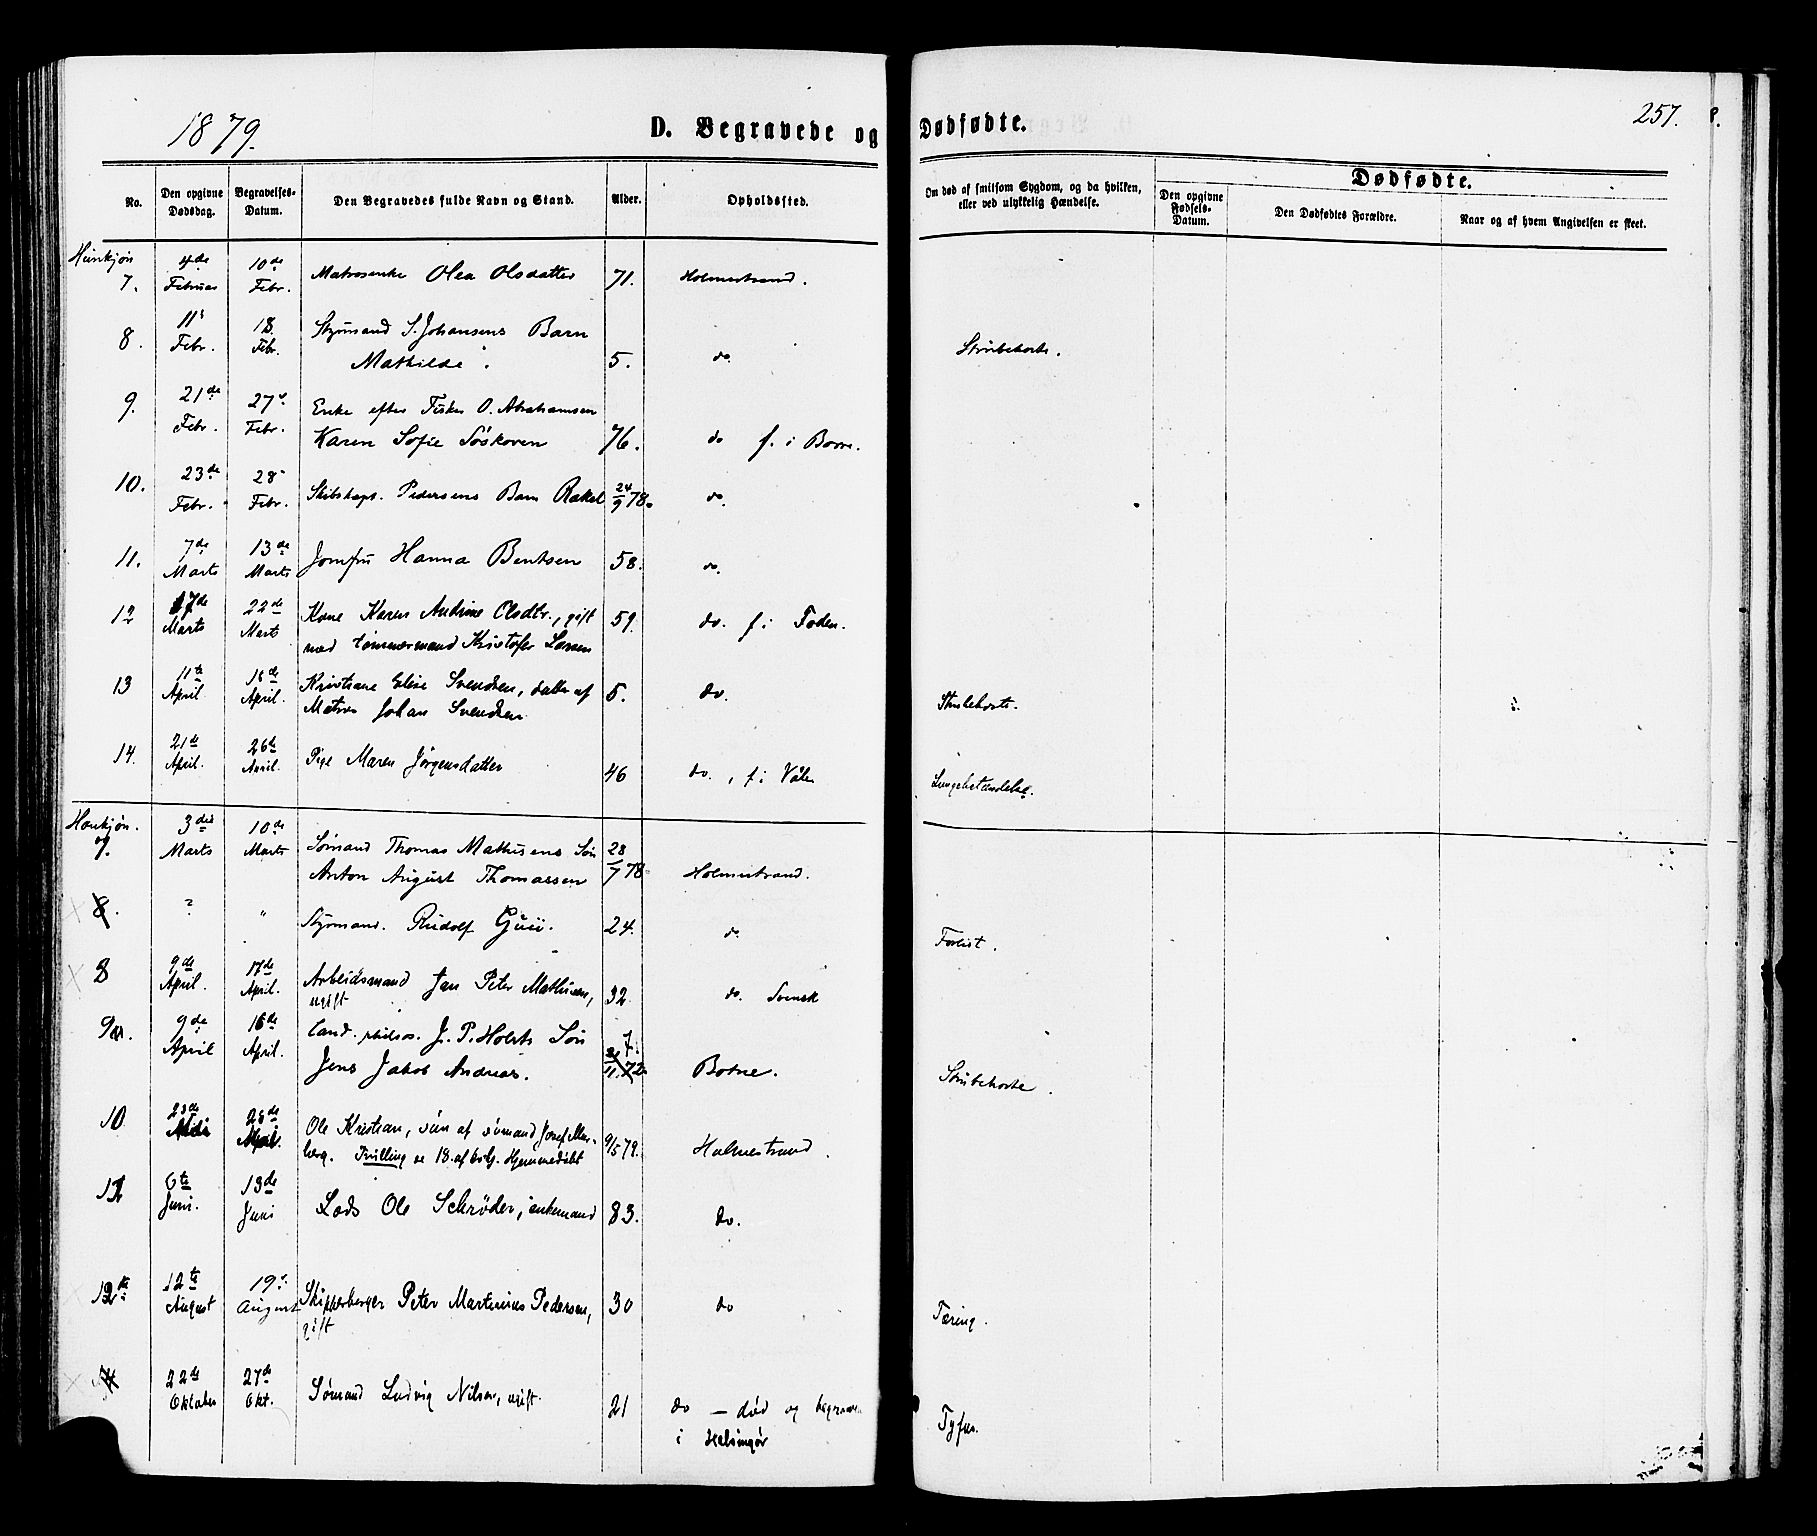 1879.
D. Begravede og Dødfødte.
257.
No.
Den opgivne Dødsdag.
Begravelses-Datum.
Den Begravedes fulde Navn og Stand.
Alder.
Opholdssted.
Om død af smitsom Sygdom, og da hvilken, eller ved ulykkelig Hændelse.
Dødfødte.
Den opgivne Fødsels-Datum.
Den Dødfødtes Forældre.
Naar og af hvem Angivelsen er skeet.
Kvinkjøn
7. 4de Februar 10de Febr. Matrosenke Olea Olsdatter 71. Holmestrand.
8. 11 Febr. 18. Febr. Styrmand S. Johansens Barn
Mathilde. 5. do. Strubehoste.
9. 21de Febr. 27 Febr. Enke efter Fisker O. Abrahamsen
Karen Sofie Søskoven 76. do f. i Borre.
10. 23de Febr. 28 Febr. Skibskapt. Pedersens Barn Rakel 24/9 78. do.
11. 7de Marts 13de Marts Jomfru Hanna Bentsen 58. do.
12 17de Marts 22de Marts Kone Karen Andrine Olsdtr., gift
med tømmermand Kristofer Larsen 59. do. f i Foden.
13 11te April 16de April. Kristiane Elise Svendsen, datter af
Matros Johan Svendsen 5. do. Strubehoste.
14. 21de April. 26de April. Pige Maren Jørgensdatter 46 do., f i Våle Lungebetændelse.
Hankjøn.
og
7. 3die Marts 10de Marts Sømand Thomas Mathisens Søn
Anton August Thomassen 28/7 78 Holmestrand.
8. ? " Styrmand. Rudolf 24. do. Forlist.
8 9de April. 17de April. Arbeidsmand Jan Peter Mathisen,
ugift 32 do. Svensk
9. 9de April 16de April. Cand. philos. J. P. Holsts Søn
Jens Jakob Andreas. 7. 11. 72 Botne. Strubehoste.
10 23de 28de Ole Kristian, søn af sømand Josef
Tvilling se 18. af Hjemmedøbt 9/5 79. Holmestrand.
11 6te Juni. 13de Juni Lods Ole Schrøder, enkemand 83. do.
12te 12te August 19. August Skibsbygger Peter Martinius Pedersen,
gift 30 do Tæring.
14 22de Oktober 27de Okt. Sømand Ludvig Nilsen, ugift 21 do — død og begraven
i Helsingør Tyfus.